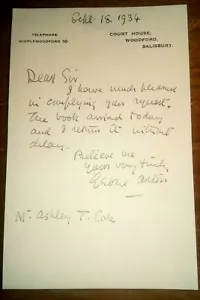 Sept 18. 1934
TELEPHONE
MIDDLEWOODFORD 10.
COURT HOUSE,
WOODFORD,
SALISBURY.
Dear Sir
I have much pleasure
in complying your request.
The book arrived today
and I return it without
delay.
Believe me
Yours very truly
Mr. Ashley T. Cole